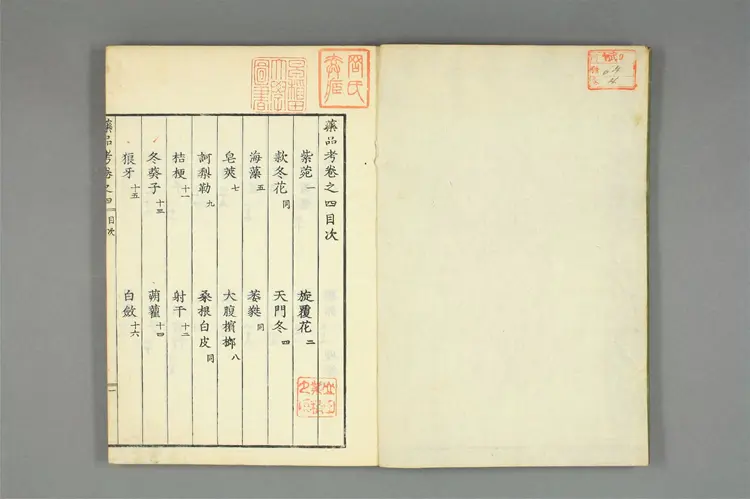 藥品考卷之四目次
紫菀 一 旋覆花 三
款冬花 同 天門冬 四
海藻 五 萎蕤 同
皂莢 七 大腹擯榔 八
訶梨勒 九 桑根白皮 同
桔梗 十一 射干 十二
冬葵子 十三 蒴藋 十四
狼牙 十五 白斂 十六
藥品考卷之四 目次 一